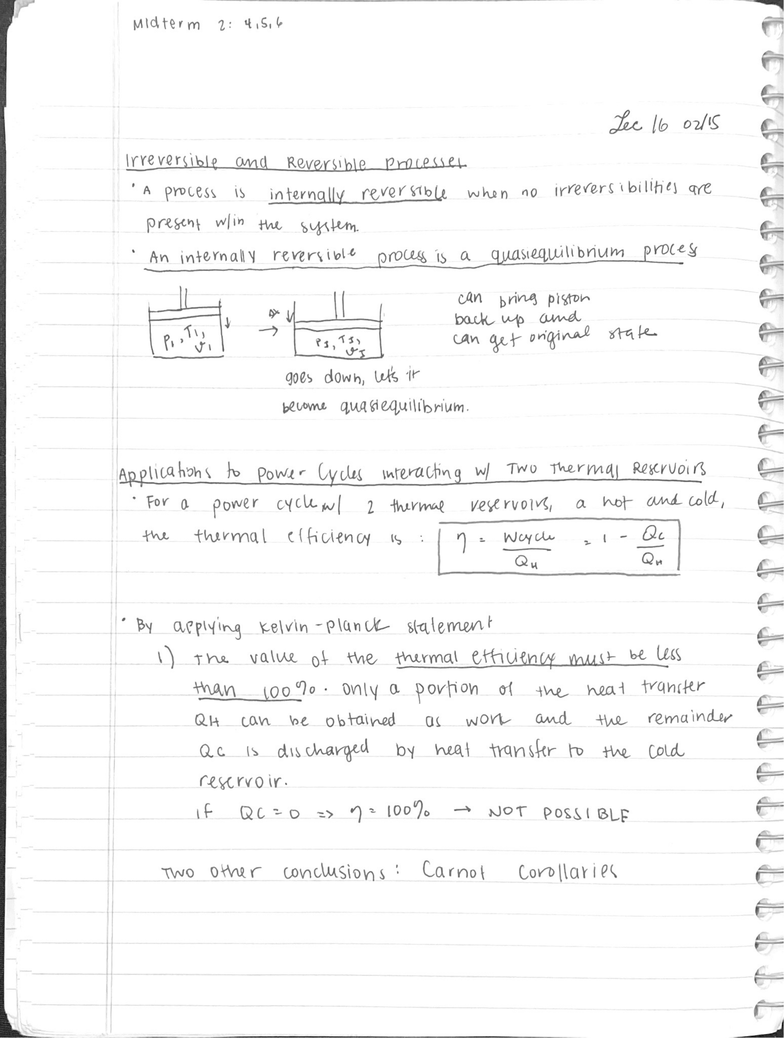 Midterm 2: 4,5,6
Lec 16 02/15
Irreversible and Reversible Processes
• A process is internally reversible when no irreversibilities are
present w/in the system.
• An internally reversible process is a quasiequilibrium process
P1, T1,
v1
can bring piston
back up amd
can get original state
goes down, let's it
become quasiequilibrium.
Applications to Power Cycles interacting w/ Two Thermal Reservoirs
• For a power cycle w/ 2 thermal reservoirs, a hot and cold,
the thermal efficiency is : η = Wcycle/QH = 1 - QC/QH
• By applying Kelvin-Planck statement
1) The value of the thermal efficiency must be less
than 100%. only a portion of the heat transfer
QH can be obtained as work and the remainder
QC is discharged by heat transfer to the cold
reservoir.
if QC = 0 => η = 100% → NOT POSSIBLE
Two other conclusions: Carnot Corollaries